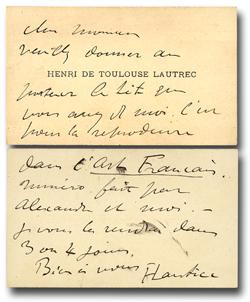 cher monsieur
veuillez donner au
HENRI DE TOULOUSE LAUTREC
porteur le lit que
vous avez à moi. C'est
pour la reproduire
dans l'Art Français.
numéro fait par
Alexandre et moi. —
je vous le rendrai dans
3 ou 4 jours.
Bien à vous HLautrec